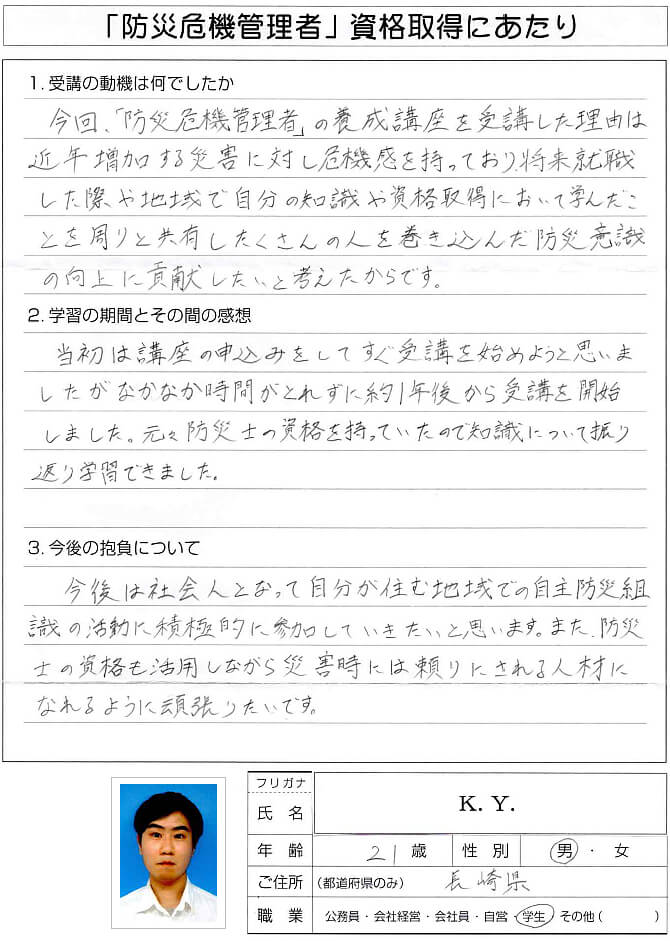 「防災危機管理者」資格取得にあたり
1. 受講の動機は何でしたか
今回、「防災危機管理者」の養成講座を受講した理由は
近年増加する災害に対し危機感を持っており、将来就職
した際や地域で自分の知識や資格取得において学んだこ
とを周りと共有したくさんの人を巻き込んだ防災意識
の向上に貢献したいと考えたからです。
2. 学習の期間とその間の感想
当初は講座の申込みをしてすぐ受講を始めようと思いま
したがなかなか時間がとれずに約1年後から受講を開始
しました。元々防災士の資格を持っていたので知識について振り
返り学習できました。
3. 今後の抱負について
今後は社会人となって自分が住む地域での自主防災組
識の活動に積極的に参加していきたいと思います。また、防災
士の資格も活用しながら災害時には頼りにされる人材に
なれるように頑張りたいです。
フリガナ
氏 名 K. Y.
年 齢 21 歳 性 別 男 ・ 女
ご住所 (都道府県のみ) 長崎県
職 業 公務員・会社経営・会社員・自営・学生・その他 ( )